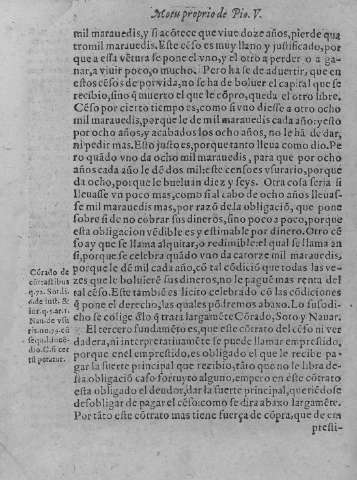 Motu proprio de Pio. V.
mil marauedis, y si acõtece que viue doze años, pierde qua
tro mil marauedis. Este cẽso es muy llano y justificado, por
que a essa vẽtura se pone el vno, y el otro a perder o a ga-
nar, a viuir poco, o mucho. Pero ha se de aduertir, que en
estos cẽsos de por vida, no se ha de boluer el capital que se
recibio, sino q̃ muerto el que le cõpro, queda el otro libre.
Cẽso por cierto tiempo es, como si vno diesse a otro ocho
mil marauedis, porque le de mil marauedis cada año: y esto
por ocho años, y acabados los ocho años, no le hã de dar,
ni pedir mas. Esto justo es, porque tanto lleua como dio. Pe
ro quãdo vno da ocho mil marauedis, para que por ocho
años cada año le dẽ dos mil este censo es vsurario, porque
da ocho, porque le bueluan diez y seys. Otra cosa seria si
lleuasse vn poco mas, como si al cabo de ocho años lleuas-
se mil marauedis mas, por razõ de la obligaciõ, que pone
sobre si de no cobrar sus dineros, sino poco a poco, porque
esta obligacion vẽdible es y estimable por dinero. Otro cẽ
so ay que se llama alquitar, o redimible: el qual se llama an
si, porque se celebra quãdo vno da catorze mil marauedis,
porque le dẽ mil cada año, cõ tal cõdiciõ que todas las ve-
zes que le boluiere sus dineros, no le paguẽ mas renta del
tal cẽso. Este tambiẽ es licito celebrãdo cõ las cõdiciones
q̃ pone el derecho, las quales põdremos abaxo. Lo susodi-
cho se colige dlo q̃ trata largamẽte Cõrado, Soto y Nauar.
El tercero fundamẽto es, que este cõtrato del cẽso ni ver
dadera, ni interpretatiuamẽte se puede llamar emprestido,
porque en el emprestido, es obligado el que le recibe pa-
gar la suerte principal que recibio, tãto que no le libra de-
sta obligaciõ caso fortuyto alguno, empero en este cõtrato
esta obligado el deudor, dar la suerte principal, queriẽdose
desobligar de pagar el cẽso: como se dira abaxo largamẽte.
Por tãto este cõtrato mas tiene fuerça de cõpra, que de em
presti-
Cõrado de
cõtractibus
q.72. Soto li.
6. de iust. &
iur. q.5. ar.1.
Nau. de vsu
ris. no.